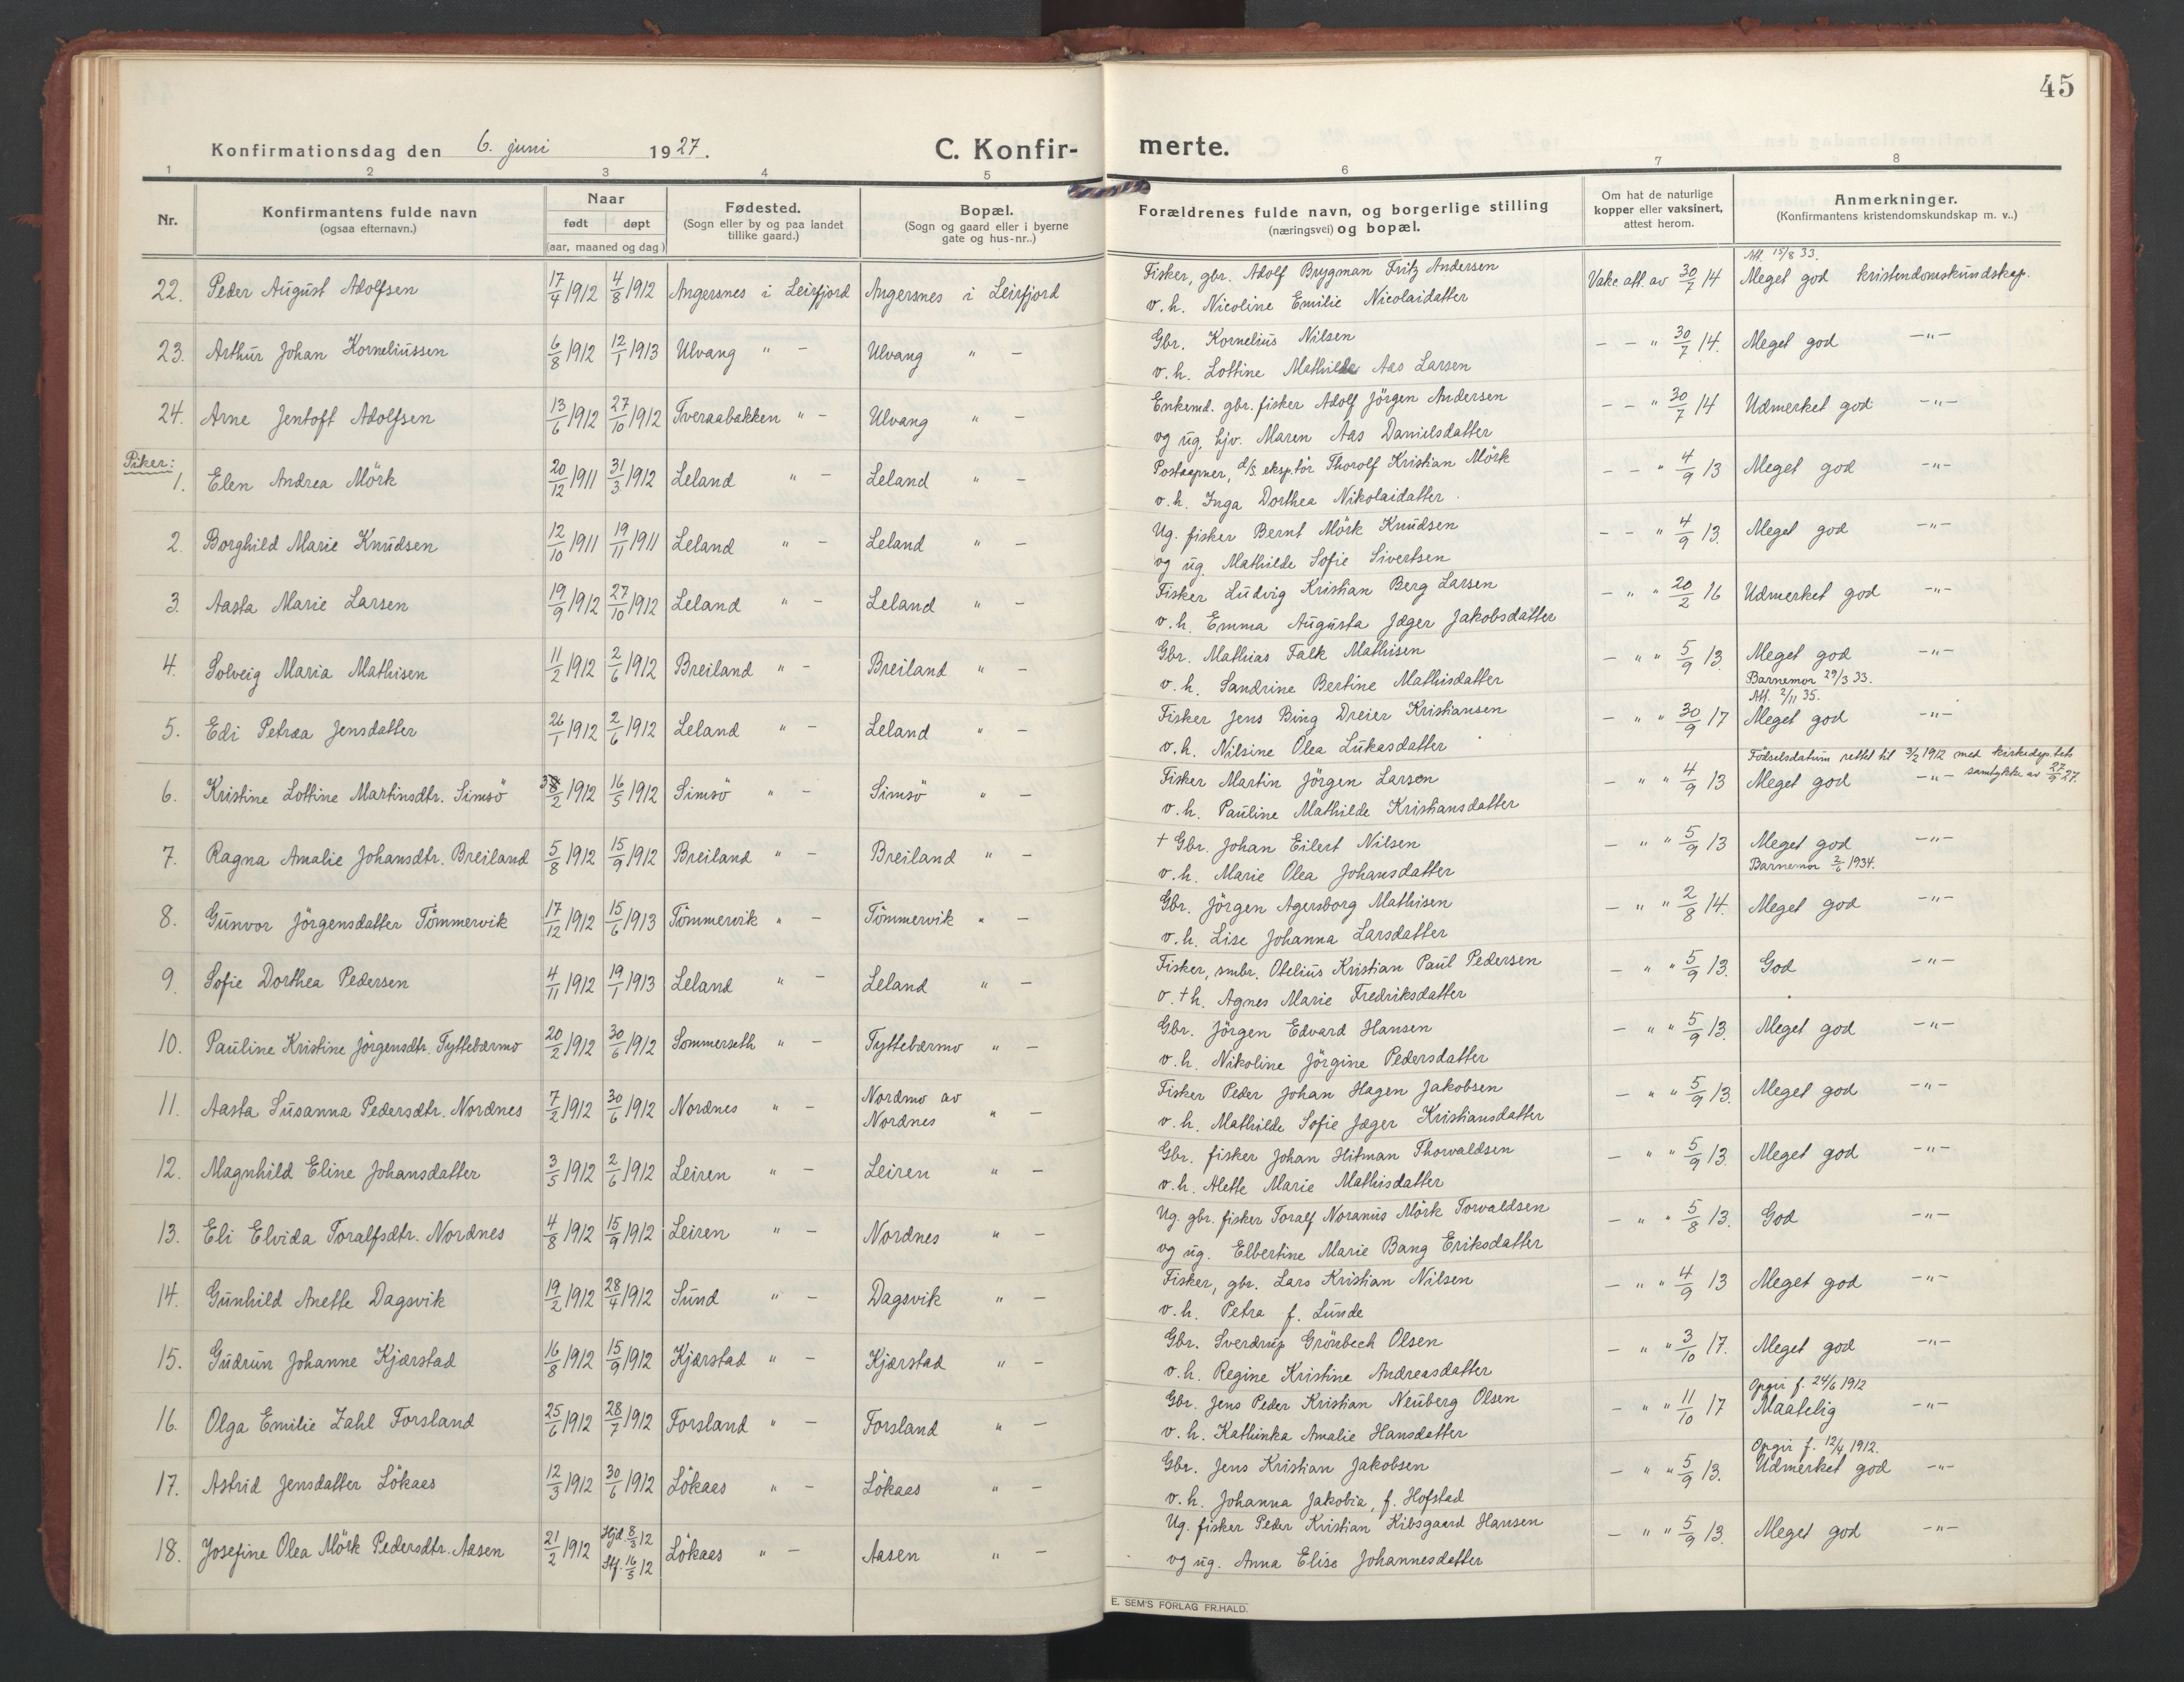 45
Konfirmationsdag den 6. juni 1927. C. Konfir- merte.
1 2 3 4 5 6 7 8
Nr. Konfirmantens fulde navn (ogsaa efternavn.) Naar født døpt (aar, maaned og dag) Fødested. (Sogn eller by og paa landet tillike gaard.) Bopæl. (Sogn og gaard eller i byerne gate og hus-nr..) Forældrenes fulde navn, og borgerlige stilling (næringsvei) og bopæl. Om hat de naturlige kopper eller vaksinert, attest herom. Anmerkninger. (Konfirmantens kristendomskundskap m. v..)
Att. 15/8 33.
22. Peder August Adolfsen 17/4 1912 4/8 1912 Angersnes i Leirfjord Angersnes i Leirfjord Fisker, gbr. Adolf Brygman Fritz Andersen Vakc. att. av 30/7 14 Meget god kristendomskundskap.
o. h. Nicoline Emilie Nicolaidatter
23. Arthur Johan Korneliussen 6/8 1912 12/1 1913 Ulvang " - Ulvang " - Gbr. Kornelius Nilsen - - " 30/7 14. Meget god -"-
o. h. Lottine Mathilde Aas Larsen
24. Arne Jentoft Adolfsen 13/6 1912 27/10 1912 Tveraabakken " - Ulvang " - Enkemd. gbr. fisker Adolf Jörgen Andersen - - " 30/7 14 Udmerket god -"-
og ug. hjv. Maren Aas Danielsdatter
Piker:
1. Elen Andrea Mörk 20/12 1911 31/3 1912 Leland " - Leland " - Postaapner, d/s. eksp.tör Thorolf Kristian Mörk - - " 4/9 13 Meget god -"-
o. h. Inga Dorthea Nikolaidatter.
2. Borghild Marie Knudsen 12/10 1911 19/11 1911 Leland " - Leland " - Ug. fisker Bernt Mörk Knudsen - - " 4/9 13. Meget god -"-
og ug. Mathilde Sofie Sivertsen
3. Aasta Marie Larsen 19/9 1912 27/10 1912 Leland " - Leland " - Fisker Ludvig Kristian Berg Larsen - " " 20/2 16 Udmerket god -"-
o. h. Emma Augusta Jæger Jakobsdatter
4. Solveig Maria Mathisen 11/2 1912 2/6 1912 Breiland " - Breiland " - Gbr. Mathias Falk Mathisen - " " 5/9 13. Meget god -"-
o. h. Sandrine Bertine Mathisdatter Barnemor 29/3 33.
Att. 2/11 35.
5. Edi Petræa Jensdatter 26/1 1912 2/6 1912 Leland " - Leland " - Fisker Jens Bing Dreier Kristiansen - " " 30/9 17 Meget god -"-
o. h. Nilsine Olea Lukasdatter
Födselsdatum rettet til 3/2 1912 med kirkedep.tets samtykke av 27/9 27.
6. Kristine Lottine Martinsdtr. Simsö 3/2 1912 16/5 1912 Simsö " - Simsö " - Fisker Martin Jörgen Larsen - " " 4/9 13 Meget god -"-
o. h. Pauline Mathilde Kristiansdatter
7. Ragna Amalie Johansdtr. Breiland 5/8 1912 15/9 1912 Breiland " - Breiland " - + Gbr. Johan Eilert Nilsen - " " 5/9 13 Meget god -"-
o. h. Marie Olea Johansdatter Barnemor 2/6 1934.
8. Gunvor Jörgensdatter Tömmervik 17/12 1912 15/6 1913 Tömmervik " - Tömmervik " - Gbr. Jörgen Agersborg Mathisen - " " 2/8 14. Meget god -"-
o. h. Lise Johanna Larsdatter
9. Sofie Dorthea Pedersen 4/11 1912 19/1 1913 Leland " - Leland " - Fisker, smbr. Otelius Kristian Paul Pedersen - " " 5/9 13. God -"-
o. + h. Agnes Marie Fredriksdatter
10. Pauline Kristine Jörgensdtr. Tyttebærmo 20/2 1912 30/6 1912 Sommerseth " - Tyttebærmo " - Gbr. Jörgen Edvard Hansen - " " 5/9 13. Meget god -"-
o. h. Nikoline Jörgine Pedersdatter
11. Aasta Susanna Pedersdtr. Nordnes 7/2 1912 30/6 1912 Nordnes " - Nordmo av Nordnes " - Fisker Peder Johan Hagen Jakobsen - " " 5/9 13. Meget god -"-
o. h. Mathilde Sofie Jæger Kristiansdatter
12. Magnhild Eline Johansdatter 3/5 1912 2/6 1912 Leiren " - Leiren " - Gbr. fisker Johan Hitman Thorvaldsen - " " 5/9 13. Meget god -"-
o. h. Alette Marie Mathisdatter
13. Eli Elvida Toralfsdtr. Nordnes 4/8 1912 15/9 1912 Leiren " - Nordnes " - Ug. gbr. fisker Toralf Noranus Mörk Torvaldsen - " " 5/8 13. God -"-
og ug. Elbertine Marie Bang Eriksdatter
14. Gunhild Anette Dagsvik 19/2 1912 28/4 1912 Sund " - Dagsvik " - Fisker, gbr. Lars Kristian Nilsen - " " 4/9 13 Meget god -"-
o. h. Petra f. Lunde
15. Gudrun Johanne Kjærstad 16/8 1912 15/9 1912 Kjærstad " - Kjærstad " - Gbr. Sverdrup Grönbech Olsen - " " 3/10 17. Meget god -"-
o. h. Regine Kristine Andreasdatter
Opgir f. 24/6 1912
16. Olga Emilie Zahl Forsland 25/6 1912 28/7 1912 Forsland " - Forsland " - Gbr. Jens Peder Kristian Neuberg Olsen - " " 11/10 17 Maatelig -"-
o. h. Kathinka Amalie Hansdatter
Opgir f. 12/4 1912.
17. Astrid Jensdatter Lökaas 12/3 1912 30/6 1912 Lökaas " - Lökaas " - Gbr. Jens Kristian Jakobsen - " " 5/9 13. Udmerket god -"-
o. h. Johanna Jakobia, f. Hofstad
18. Josefine Olea Mörk Pedersdtr. Aasen 21/2 1912 Hjd. 8/3 12 Stf. 16/5 12 Lökaas " - Aasen " - Ug. fisker Peder Kristian Kibsgaard Hansen - " " 5/9 13. Meget god -"-
og ug. Anna Elise Johannesdatter
E. SEM'S FORLAG FR.HALD.